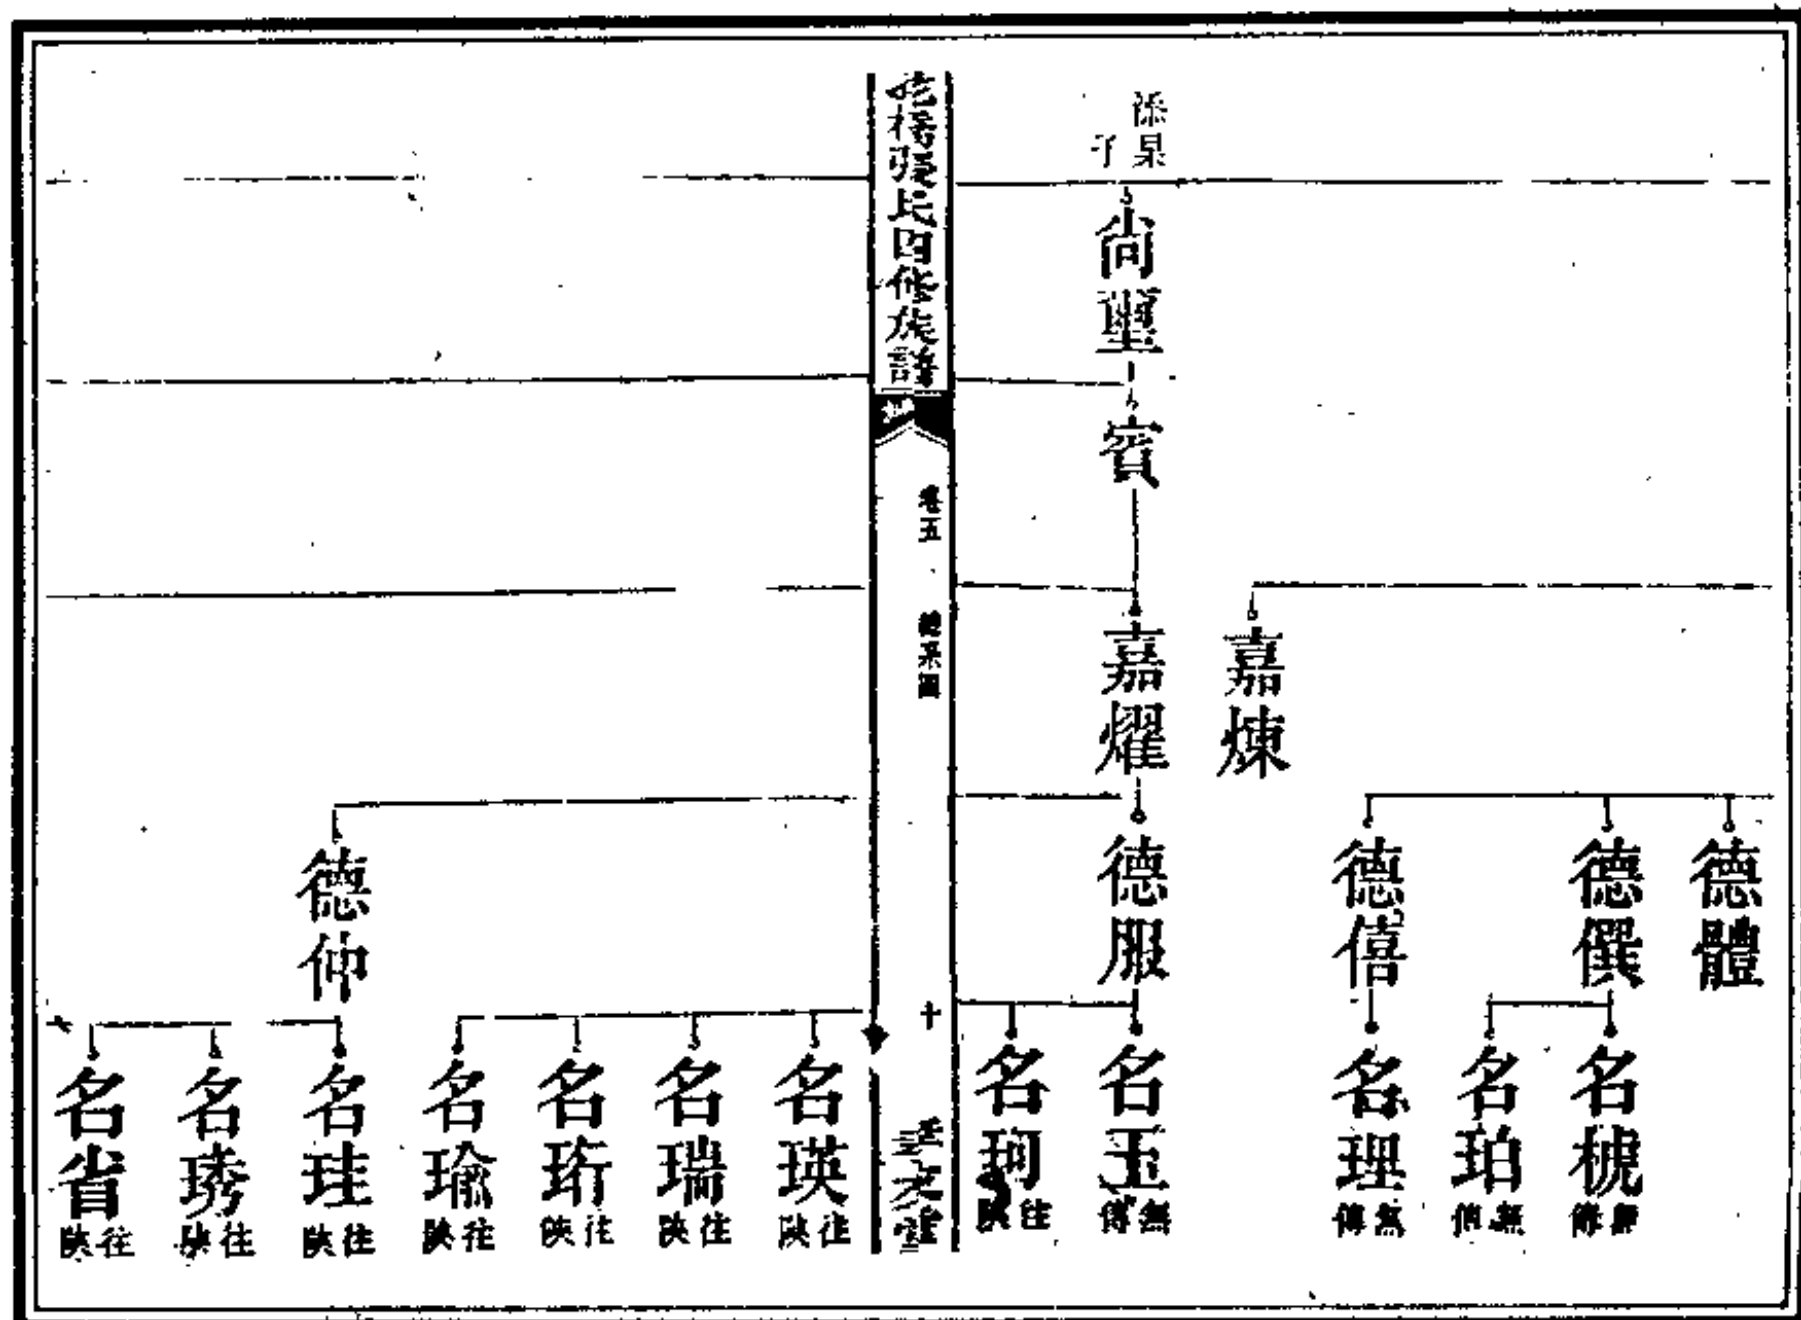 添杲子
尙璽
賓
嘉煉
嘉燿
德體
德僎
德僖
德服
德仲
名槐 無傳
名珀 無傳
名理 無傳
名玉 無傳
名珂 往陝
張氏四修族譜
卷五
十
名瑛 往陝
名瑞 往陝
名珩 往陝
名瑜 往陝
名珪 往陝
名琇 往陝
名省 往陝